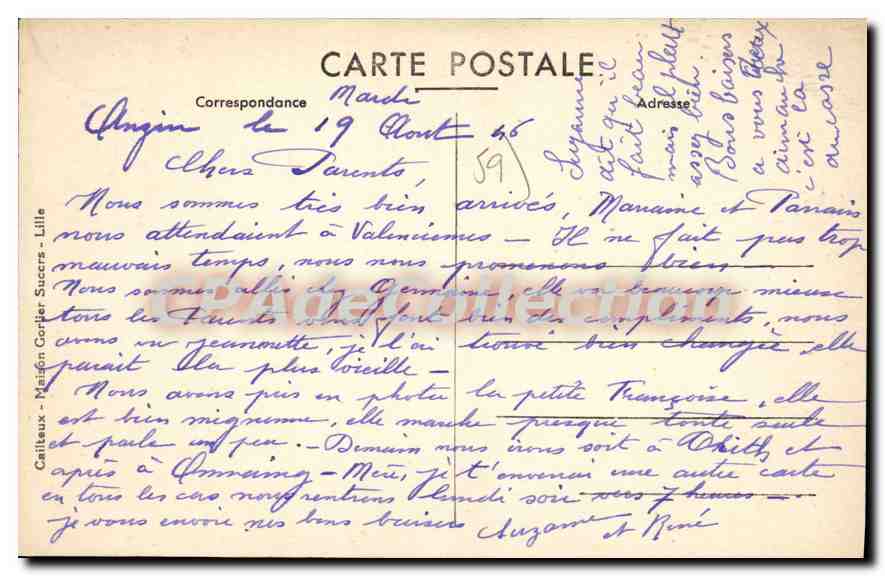 CARTE POSTALE
Correspondance
Adresse
Mardi
Anzin le 19 Aout 46
59
Chers Parents,
Nous sommes très bien arrivés, Marraine et Parrain
nous attendaient à Valenciennes - Il ne fait pas trop
mauvais temps, nous nous promenons bien
Nous sommes allés chez Germaine, elle va beaucoup mieux
tous les Parents vous font bien des compliments, nous
avons vu jeannette, je l'ai trouvé bien changée, elle
parait la plus vieille -
Nous avons pris en photo la petite Françoise, elle
est bien mignonne, elle marche presque toute seule
et parle un peu. - Demain nous irons soit à et
après à Onnaing - je t'enverrai une autre carte
en tous les cas nous rentrons lundi soir vers 7 heures -
je vous envoie nos bons baisers
Suzanne et René
Suzanne
dit qu'il
fait beau
mais il pleut
assez bien.
Bons baisers
a vous
dimanche
c'est la
ducasse
Cailteux - Maison Gorlier Succrs - Lille
CPAdeCollection